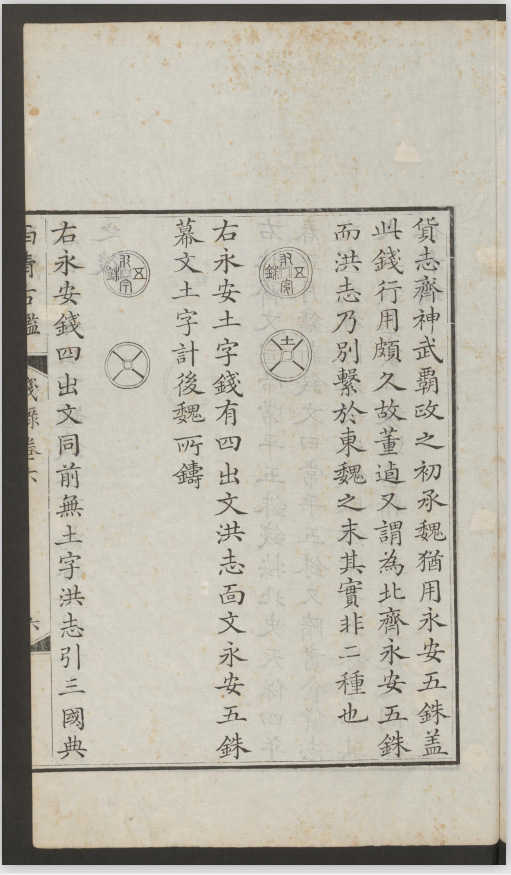 貨志齊神武霸政之初承魏猶用永安五銖盖
此錢行用頗久故董逌又謂為北齊永安五銖
而洪志乃別繫於東魏之末其實非二種也
永安五銖
土
右永安土字錢有四出文洪志面文永安五銖
幕文土字計後魏所鑄
永安五銖
右永安錢四出文同前無土字洪志引三國典
西清古鑑
錢錄卷六
六